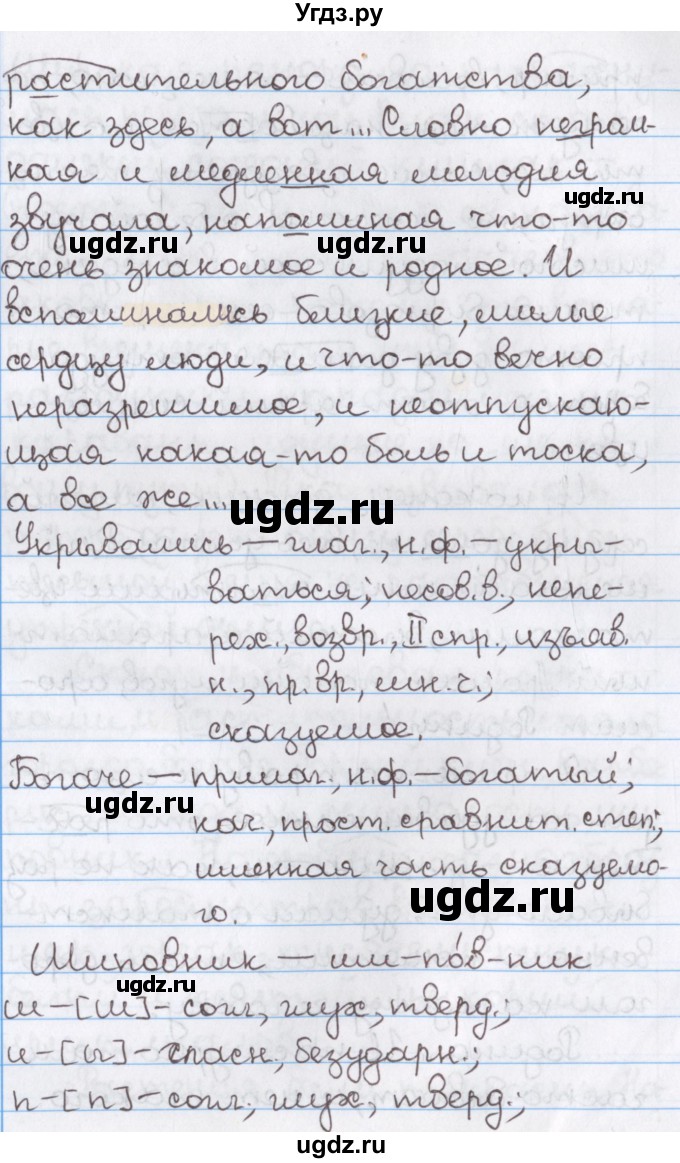 Угдз.ру
растительного богатства,
как здесь, а вот... Словно неграм-
кая и медленная мелодия
ugdz.ru
звучала, напоминная что-то
ugdz.ru
ugdz.ru
очень знакомое и родное. И
вспоминались близкие, милые
сердцу люди, и что-то вечно
неразрешимое, и неотпускаю-
щая какая-то боль и тоска,
а все же...
ugdz.ru
Укрывались – глаг., н.ф. – укры-
ваться; несов.в., непе-
рех., возвр., II спр., изъяв.
н., пр.вр., мн.ч.;
сказуемое.
Богаче – прилаг., н.ф. – богатый;
ugdz.ru
кач., прост. сравнит. степ.;
именная часть сказуемо-
ugdz.ru
го.
Шиповник – ши-по́в-ник
ugdz.ru
ш – [ш] – согл., глух., тверд.;
и – [ы] – гласн., безударн.;
ugdz.ru
п – [п] – согл., глух., тверд.;
ugdz.ru